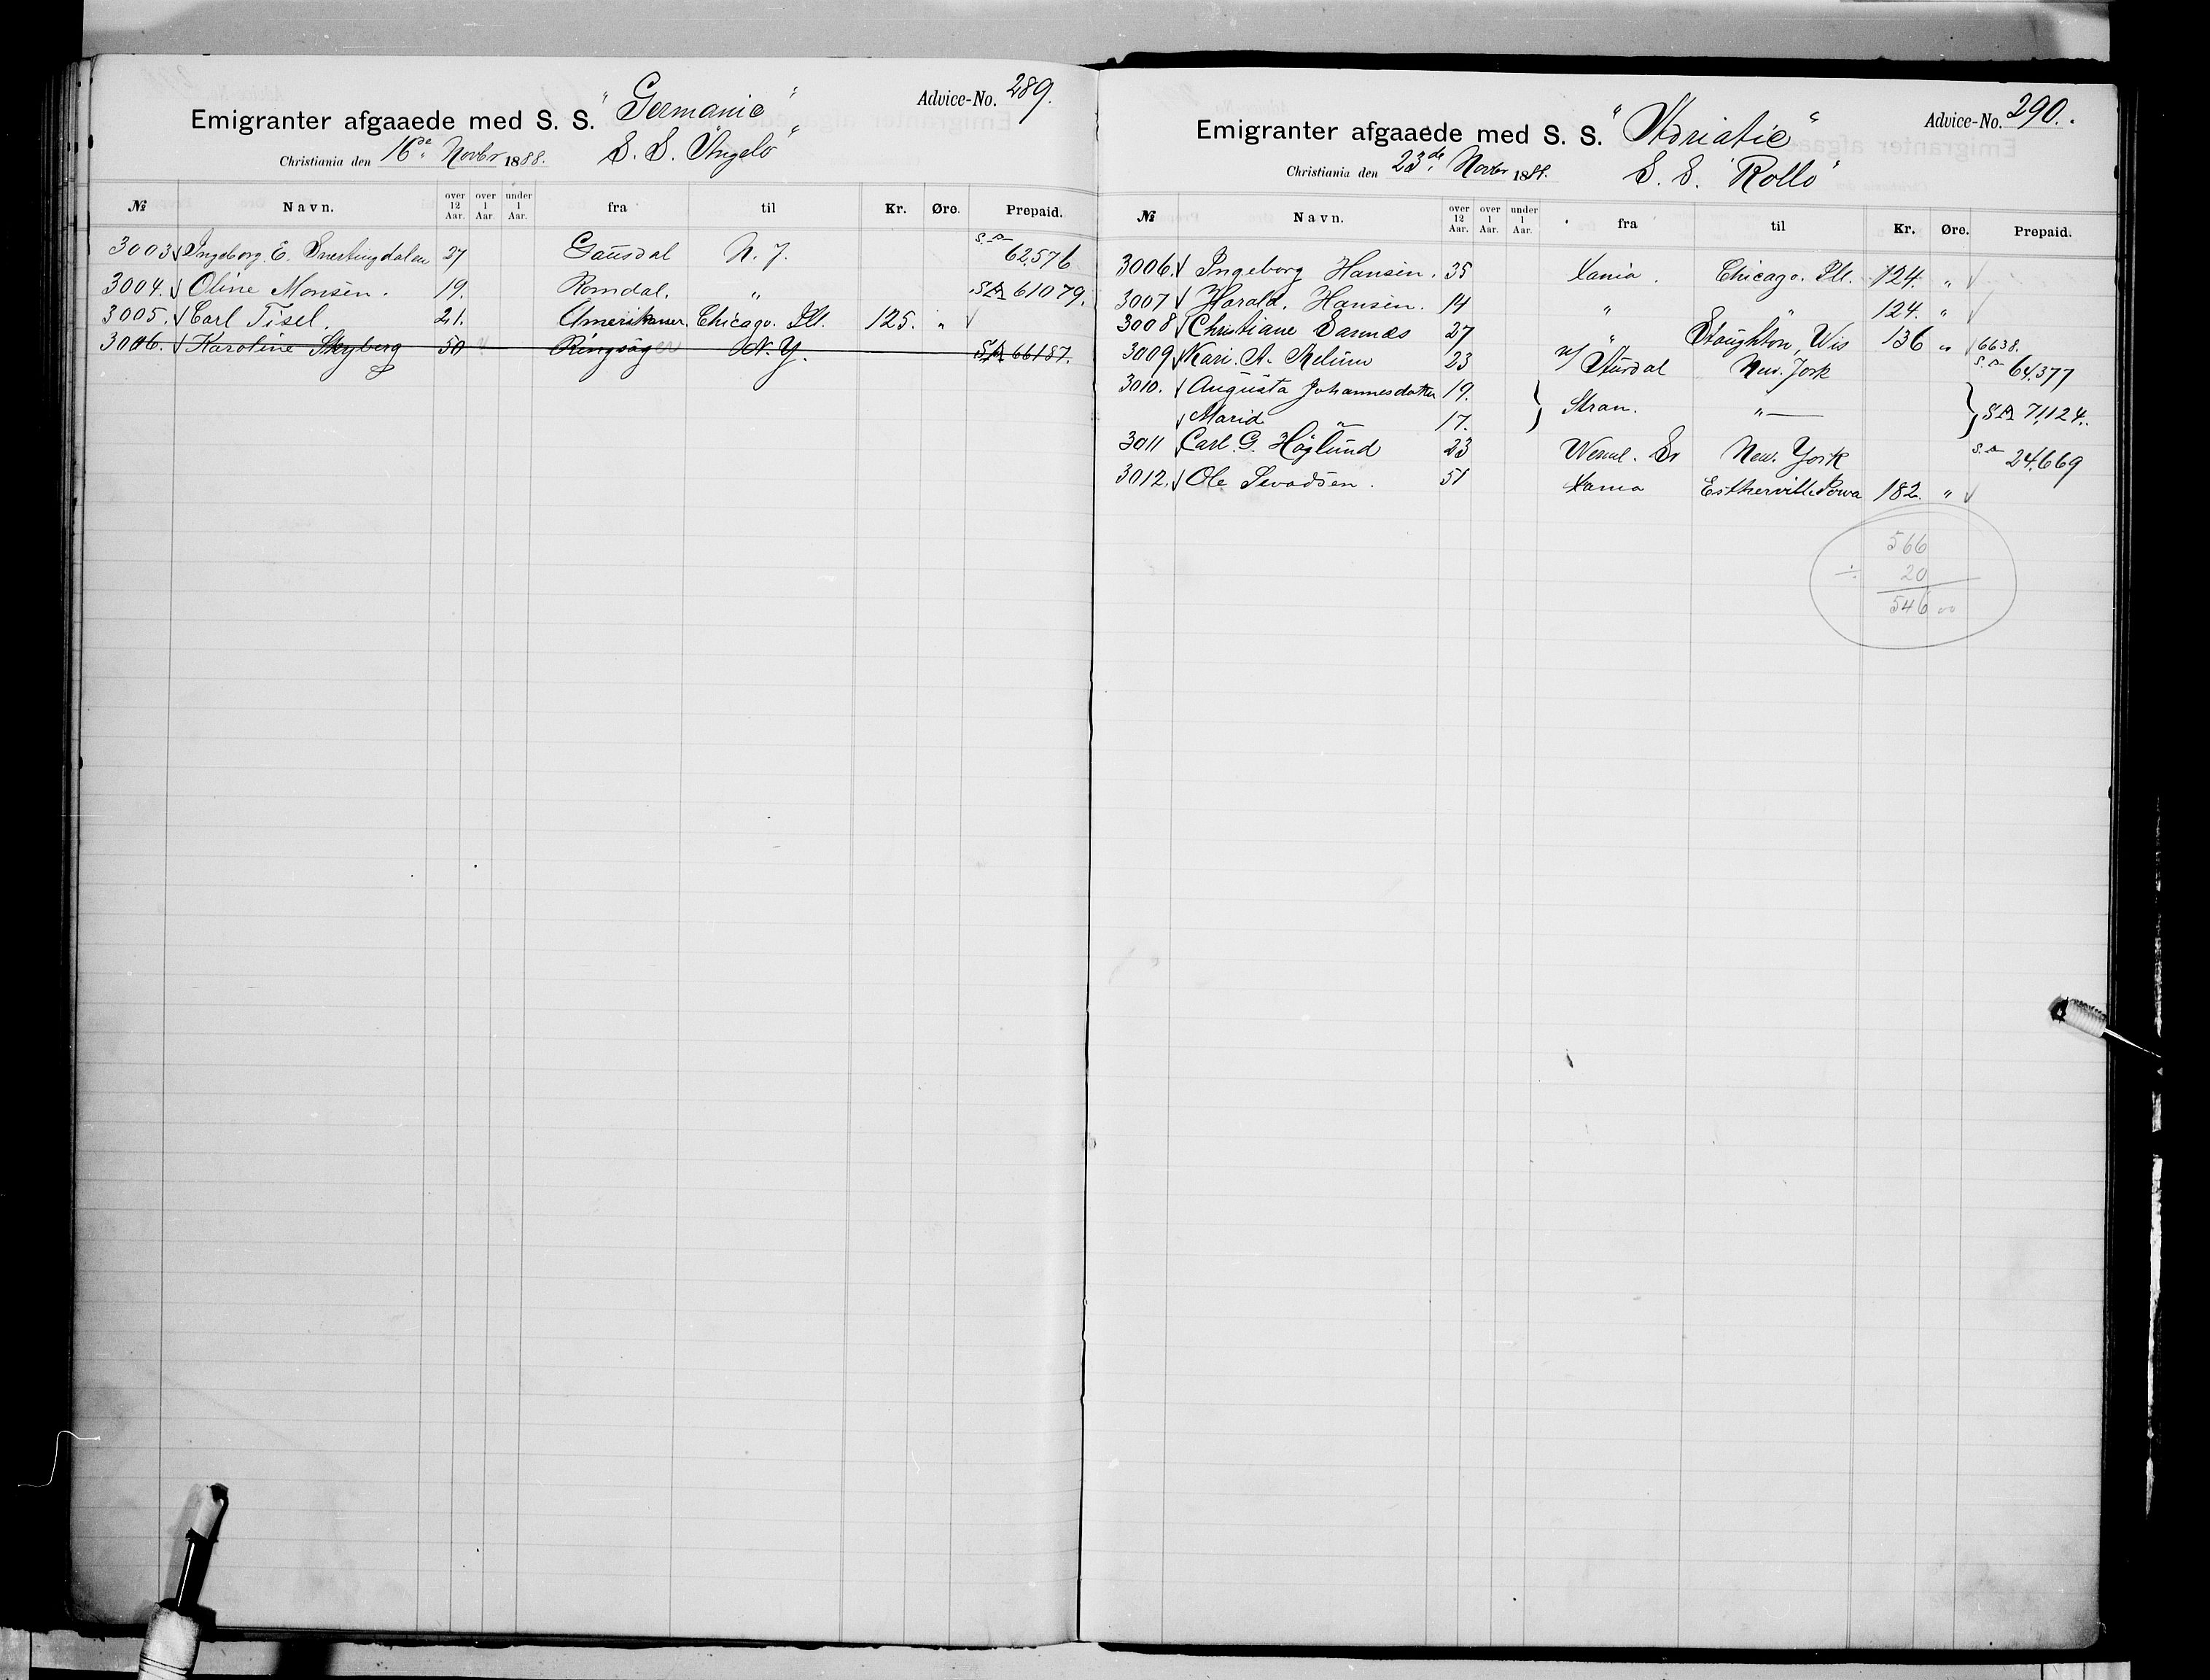 Emigranter afgaaede med S. S. "Germanic"
Advice-No. 289.
Christiania den 16de Novbr 1888. S. S. "Angelo"
№ Navn. over 12 Aar. over 1 Aar. under 1 Aar. fra til Kr. Øre. Prepaid.
3003 Ingeborg E. Snertingdalen 27 Gausdal N. J. S.A. 62,576
3004. Oline Monsen. 19. Romdal. " S.A. 61079.
3005. Carl Tisel. 21. Amerikaner. Chicago. Ill. 125. "
3006. Karoline Skyberg 50 Ringsager N. Y. S.A. 66187.
Emigranter afgaaede med S. S. "Adriatic"
Advice-No. 290.
Christiania den 23de Novbr 1888. S. S. "Rollo"
№ Navn. over 12 Aar. over 1 Aar. under 1 Aar. fra til Kr. Øre. Prepaid.
3006. Ingeborg Hansen. 35 Xania. Chicago. Ill. 124. "
3007 Harald. Hansen. 14 " " 124. "
3008 Christiane Sarnæs 27 " Stoughton, Wis 136 " 6638.
3009 Kari. A. Melum 23 Aurdal New. York S.A. 64,377
3010. Augusta Johannesdotter 19. } Stran. "— } S.A. 71,124.
Marid " 17.
3011 Carl. G. Höglund 23 Werml. Sv New. York S.A. 24,669
3012. Ole Sevadsen. 51 Xania Estherville Iowa 182. "
566
÷ 20
546 00